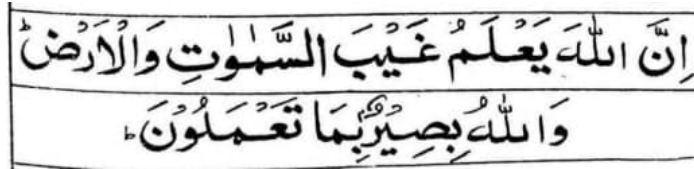 اِنَّ اللّٰهَ يَعْلَمُ غَيْبَ السَّمٰوٰتِ وَالْاَرْضِ ؕ
وَاللّٰهُ بَصِيْرٌۢ بِمَا تَعْمَلُوْنَ ؕ